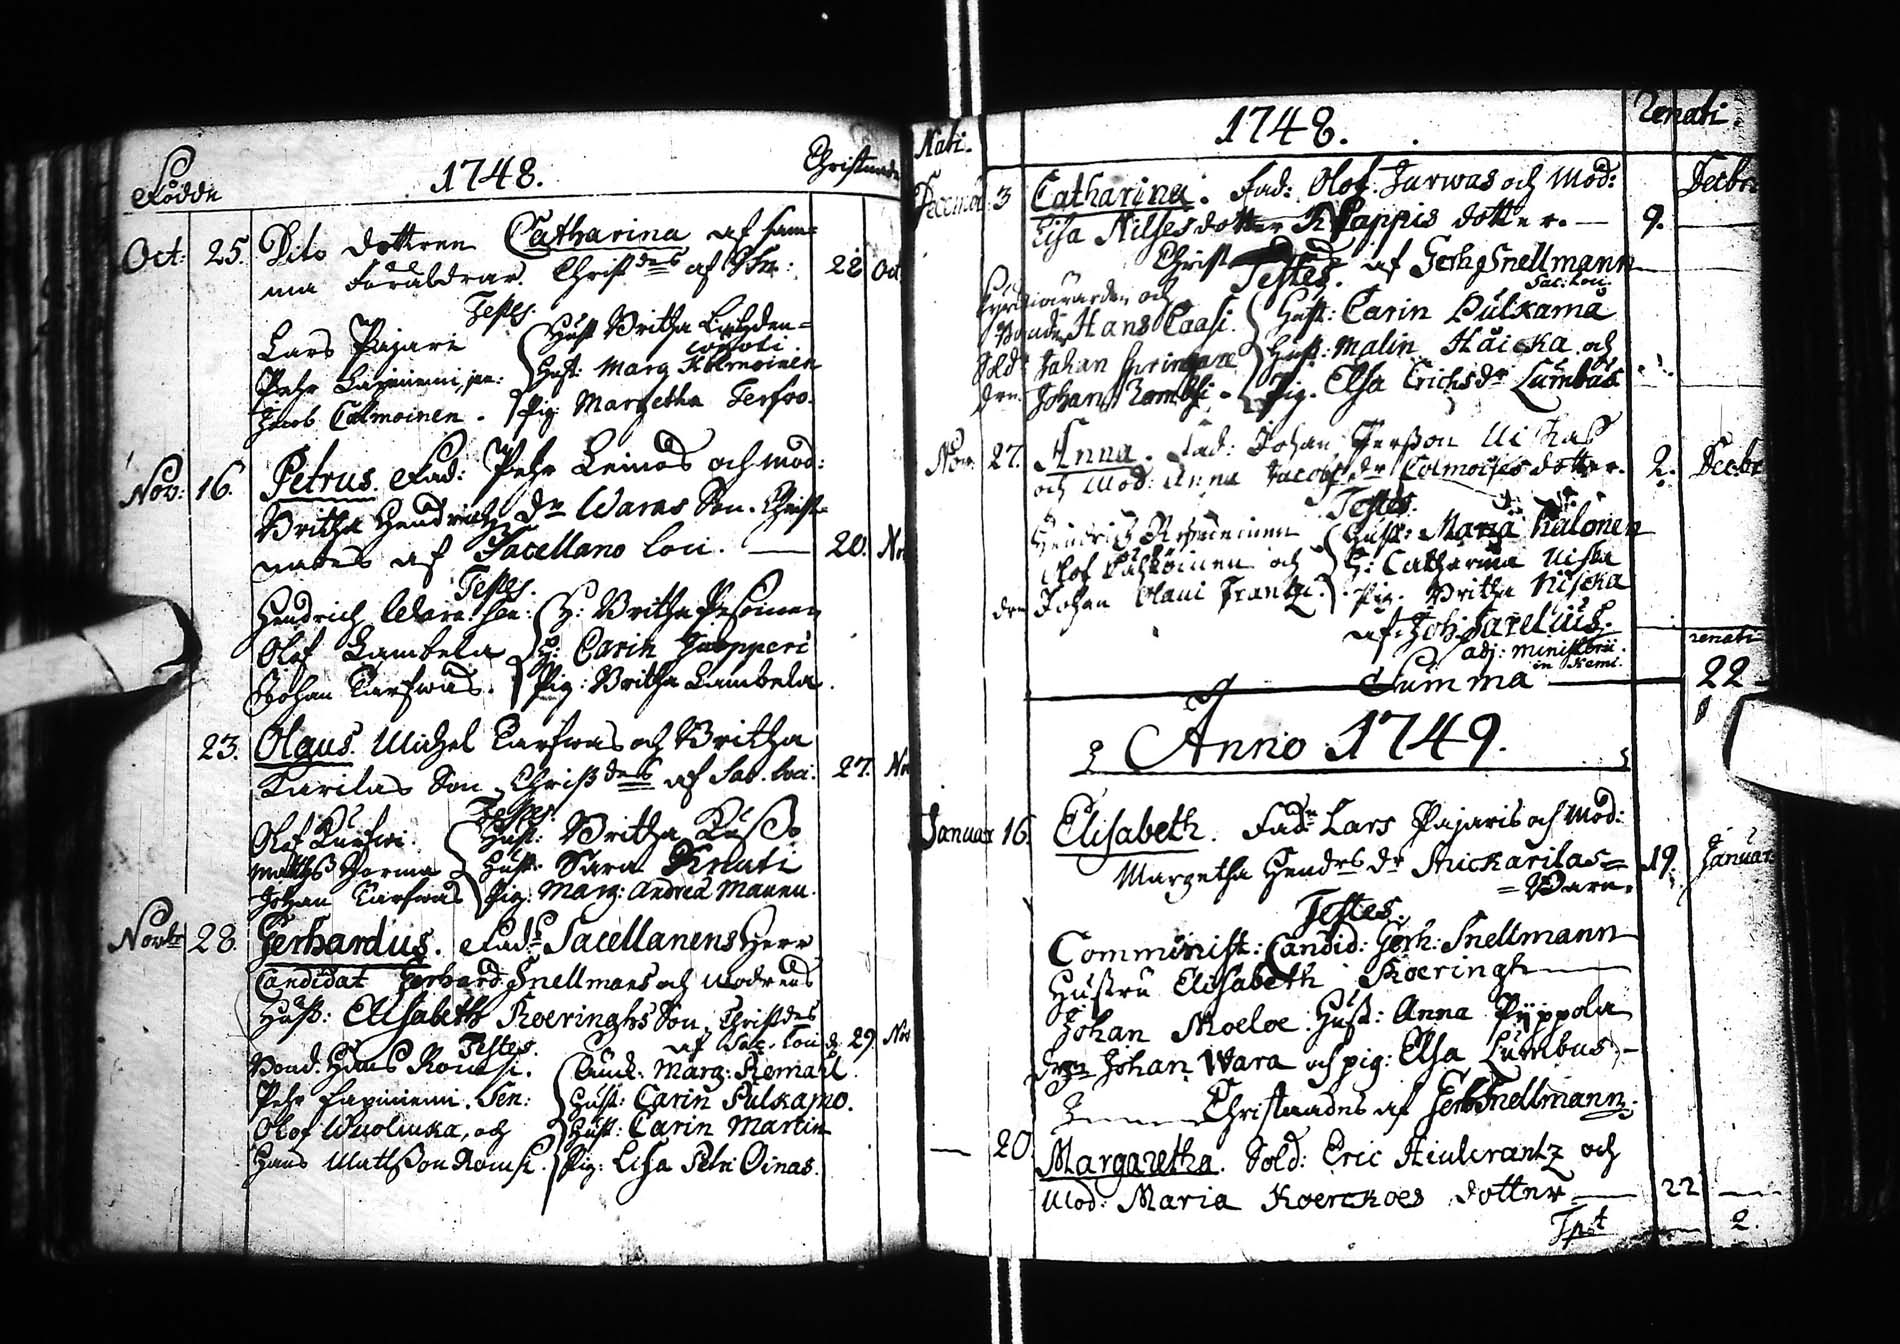 Födde 1748. Christnade
Oct: 25. Dito dottren Catharina af sam=
ma Föräldrar. Christdes af 28 Oct
Testes.
Lars Pajari Hust Britha
Pehr Lapiniemi jun: Hust: Marg Kolmoinen
Jacob Colmoinen. Pig: Margetha Terfwo.
Nov: 16. Petrus. Fad: Pehr Leinos och mod:
Britha Hendrichz dr Waras Son. Christ=
nades af Sacellano loci. 20. No
Testes.
Hendrich Wara H: Britha Pesoinen
Olof Lambela H: Carin Huopperi
Johan Karfwas. Pig: Britha Lambela.
23. Olaus. Michel Karfwas och Britha
Karilas Son. Christdes af Sac. loci. 27. No
Testes.
Olof Kurfwi. Hust: Britha
Matths Sorma Hust: Sara Knuti
Johan Karfwas Pig: Marg: Andreæ Maunu.
Novbr 28. Gerhardus. Fadr Sacellanens Herr
Candidat Gerhard Snellmans och modrens
Hust: Elisabeth Koeringhs Son. Christdes
af Sac. Loci d: 29. Nov
Testes.
Bond. Hans Romsi. Marg: Remahl
Pehr Lapiniemi. Sen: Hust: Carin Pulkamo.
Olof Wuolicka, och Hust: Carin Martin
Hans Mattsson Romsi. Pig: Lisa Petri Oinas.
Nati. 1748. renati.
Decemb: 3 Catharina. Fad: Olof Jarwas och Mod: Decbr
Lisa Nilsesdotter Kappis dotter. 9.
Christ af Gerh Snellmann
Testes. Sac: Loci
och
Hans Caasi. Hust: Carin Pulkama
Sold: Johan Hust: Malin Haicka och
dr: Johan Romsi. Pig. Elsa Erichsdr Lumbus
Nov. 27. Anna. Fad: Johan Persson Uiskas
och Mod: Anna Jacobs dr Colmoises dotter. 2. Decbr
Testes.
Hendrich Hust: Maria Kälonen
Olof och H: Catharina Uiska
drn Johan Olavi Frantzi. Pig. Britha Niska
af: Joh: Sarelius.
adj: ministerii
in Kemi. renati
Summa 22
Anno 1749.
Januar 16. Elisabeth. Fadr Lars Pajaris och Mod:
Margetha Hendrs dr Auckarilas= 19. Januar
=Barn.
Testes.
Comminist: Candid: Gerh: Snellmann
Hustru Elisabeth Koeringh
Johan Moeloe Hust: Anna Pyppola
Johan Wara och pig: Elsa Lumbus
Christnades af Gerh Snellmann.
20 Margaretha. Sold: Eric Hiulcrantz och
Mod: Maria Koerckoes dotter 22
Test 2.